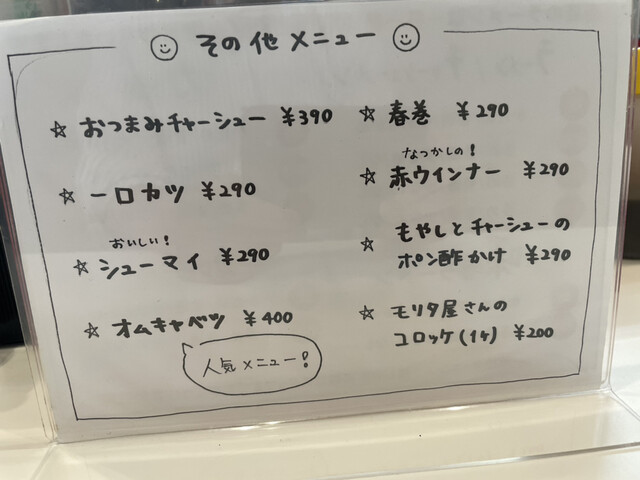 その他 メニュー
☆ おつまみチャーシュー ¥390
☆ 一口カツ ¥290
おいしい!
☆ シューマイ ¥290
☆ オムキャベツ ¥400
人気メニュー!
☆ 春巻 ¥290
なつかしの!
☆ 赤ウインナー ¥290
☆ もやしとチャーシューの
ポン酢かけ ¥290
☆ モリタ屋さんの
コロッケ(1ヶ) ¥200